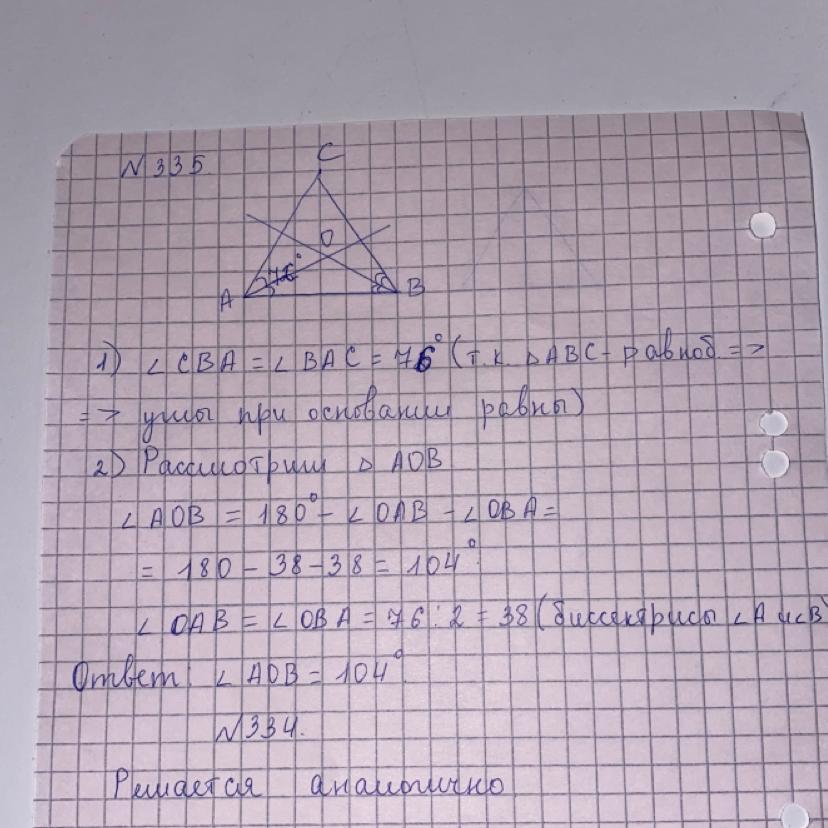 N 335
C
O
76°
A
B
1) ∠CBA = ∠BAC = 76° (т.к. ΔABC - равноб =>
=> углы при основании равны)
2) Рассмотрим Δ AOB
∠AOB = 180° - ∠OAB - ∠OBA =
= 180 - 38 - 38 = 104°.
∠OAB = ∠OBA = 76 : 2 = 38 (биссектрисы ∠A и ∠B)
Ответ: ∠AOB = 104°.
N 334.
Решается аналогично